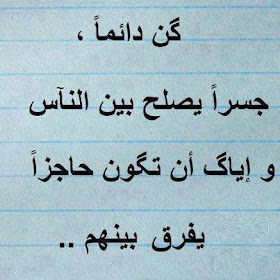 گن دائماً ،
جسراً يصلح بين النآس
و إياگ أن تگون حاجزاً
يفرق بينهم ..